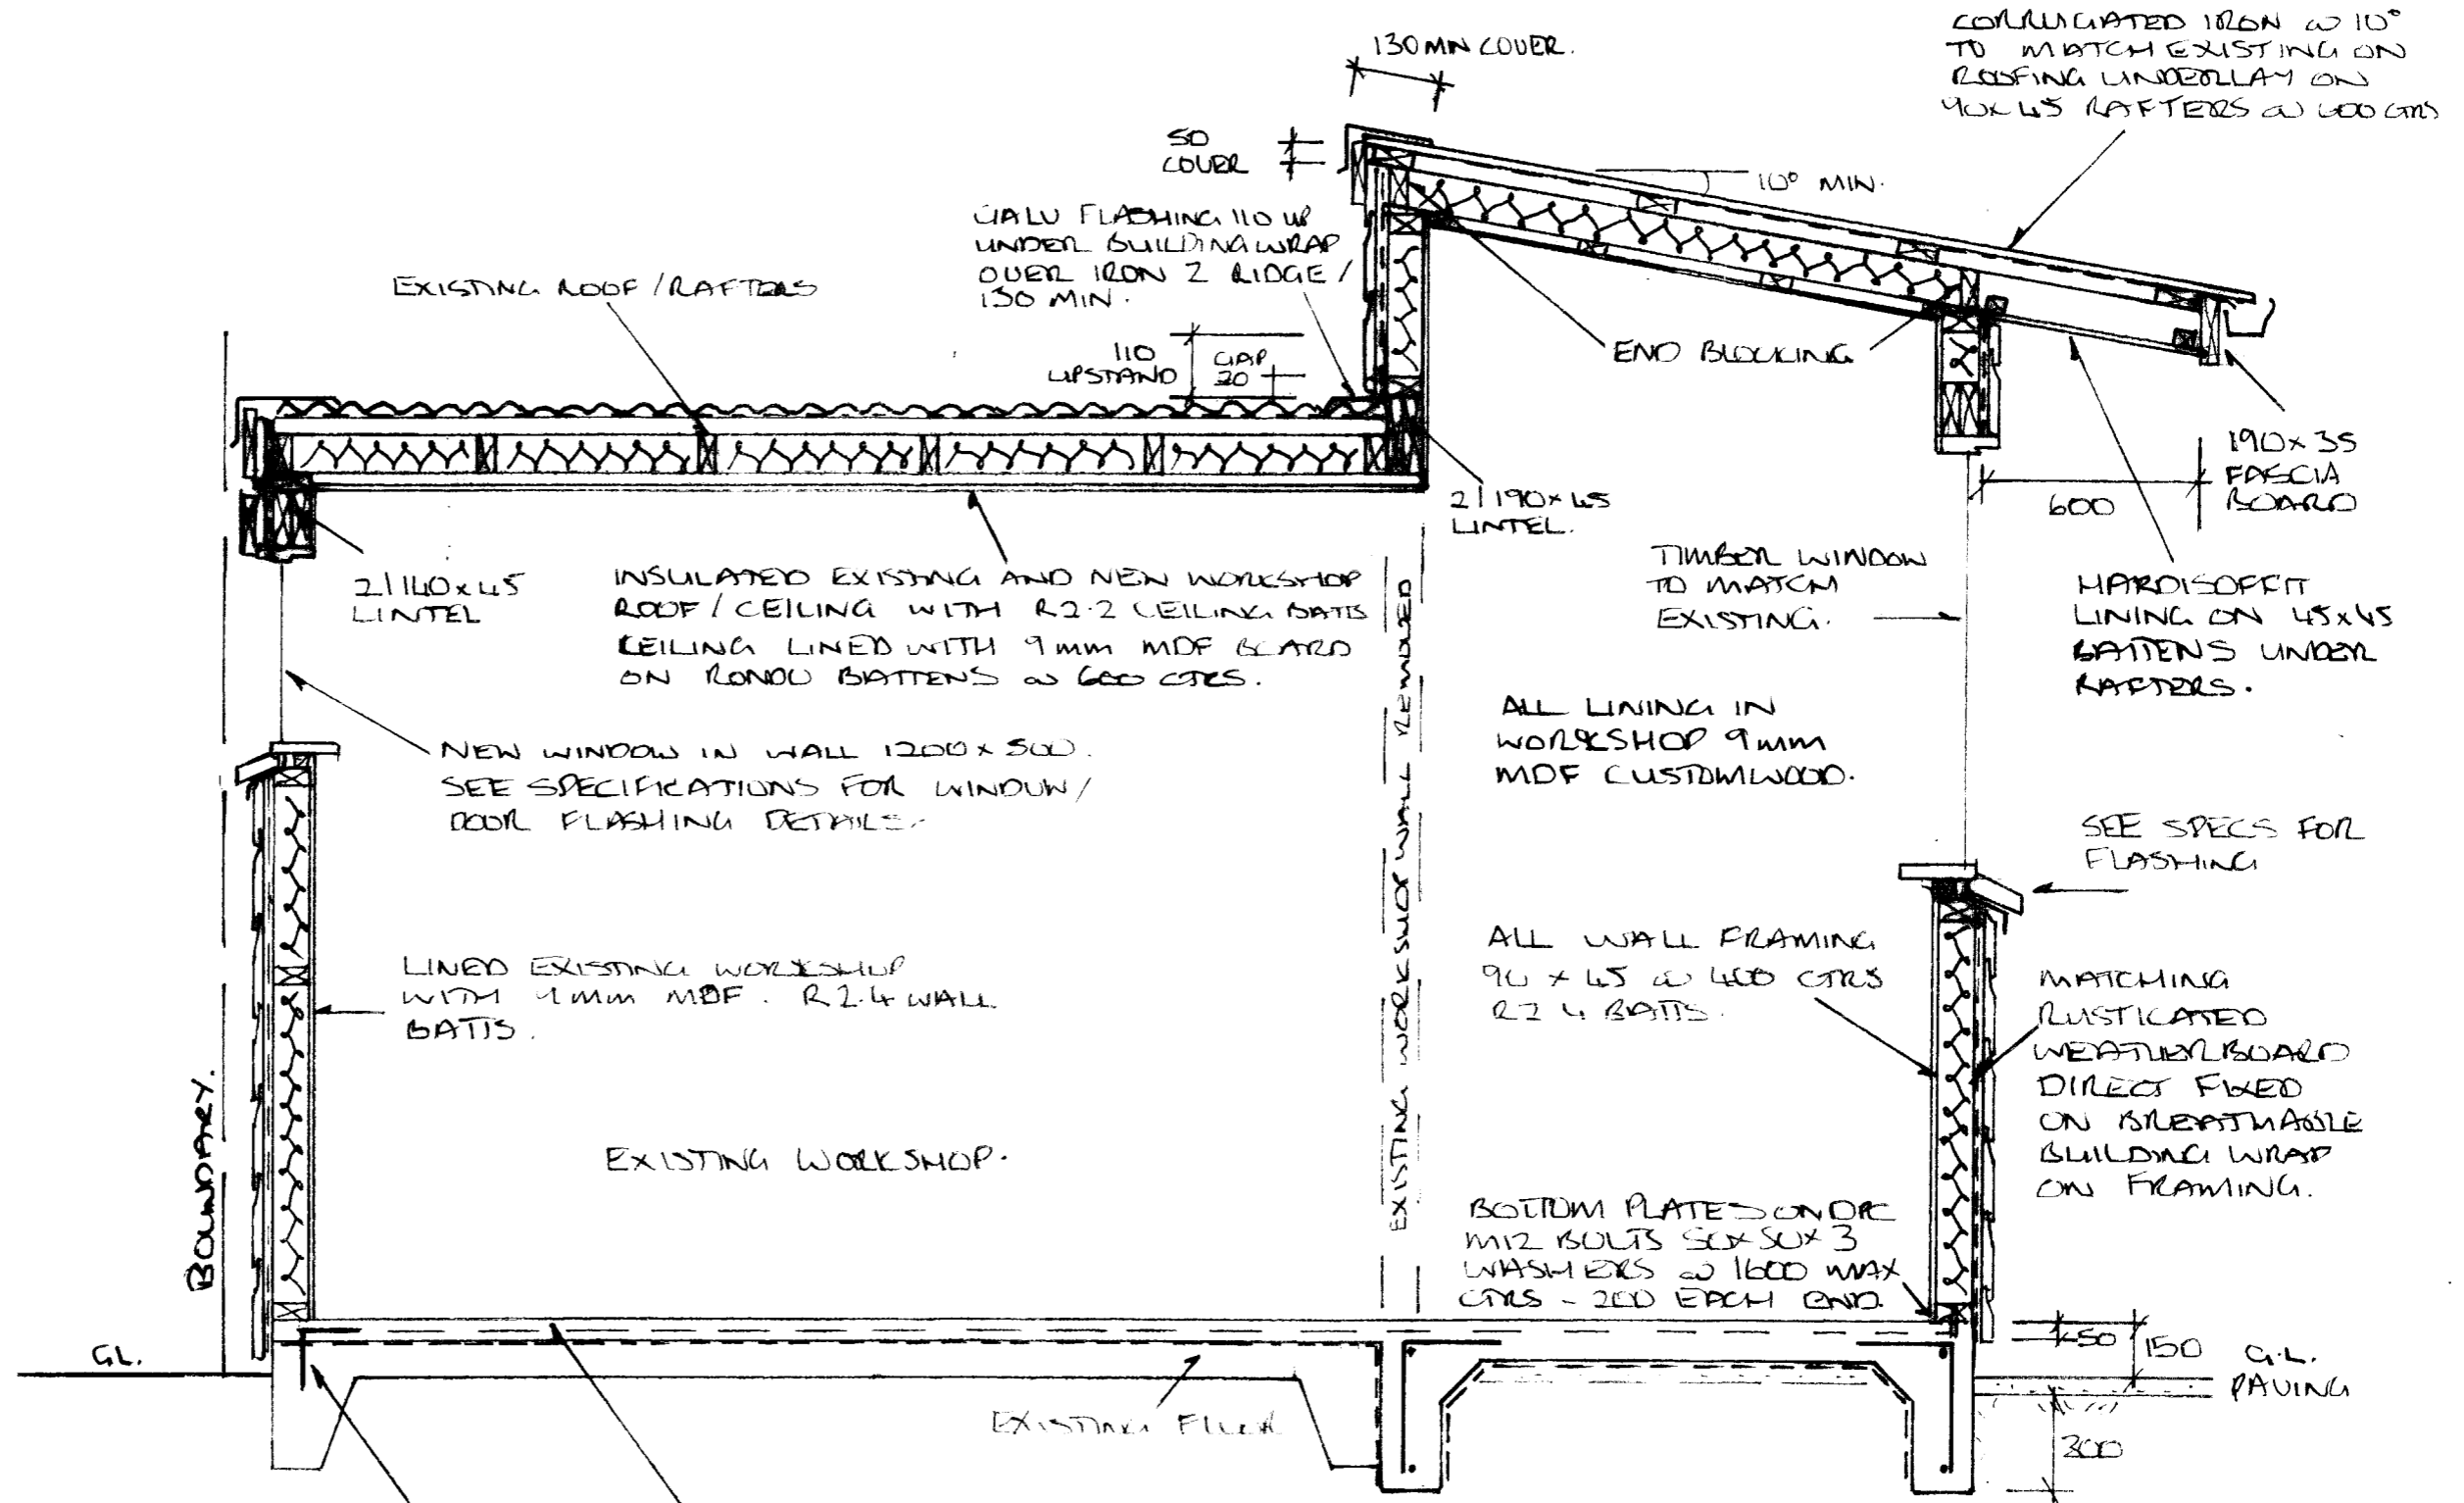 CORRUGATED IRON @ 10°
TO MATCH EXISTING ON
ROOFING UNDERLAY ON
90x45 RAFTERS @ 600 CTRS
130 MIN COVER.
50
COVER
10° MIN.
GALV FLASHING 110 UP
UNDER BUILDING WRAP
OVER IRON 2 RIDGE /
130 MIN.
EXISTING ROOF / RAFTERS
110
UPSTAND
GAP
20
END BLOCKING
190 x 35
FASCIA
BOARD
600
2/190x45
LINTEL.
2/140x45
LINTEL
INSULATED EXISTING AND NEW WORKSHOP
ROOF / CEILING WITH R2.2 CEILING BATTS
CEILING LINED WITH 9mm MDF BOARD
ON RONDO BATTENS @ 600 CTRS.
TIMBER WINDOW
TO MATCH
EXISTING.
HARDISOFFIT
LINING ON 45x45
BATTENS UNDER
RAFTERS.
NEW WINDOW IN WALL 1200 x 500.
SEE SPECIFICATIONS FOR WINDOW /
DOOR FLASHING DETAILS.
ALL LINING IN
WORKSHOP 9mm
MDF CUSTOMWOOD.
EXISTING WORKSHOP WALL REMOVED
SEE SPECS FOR
FLASHING
LINED EXISTING WORKSHOP
WITH 9mm MDF. R2.4 WALL
BATTS.
ALL WALL FRAMING
90 x 45 @ 400 CTRS
R2.4 BATTS.
MATCHING
RUSTICATED
WEATHERBOARD
DIRECT FIXED
ON BREATHABLE
BUILDING WRAP
ON FRAMING.
BOUNDARY.
EXISTING WORKSHOP.
BOTTOM PLATES ON DPC
M12 BOLTS 50x50x3
WASHERS @ 1600 MAX
CTRS - 200 EACH END.
G.L.
50
150
G.L.
PAVING
EXISTING FLOOR
300